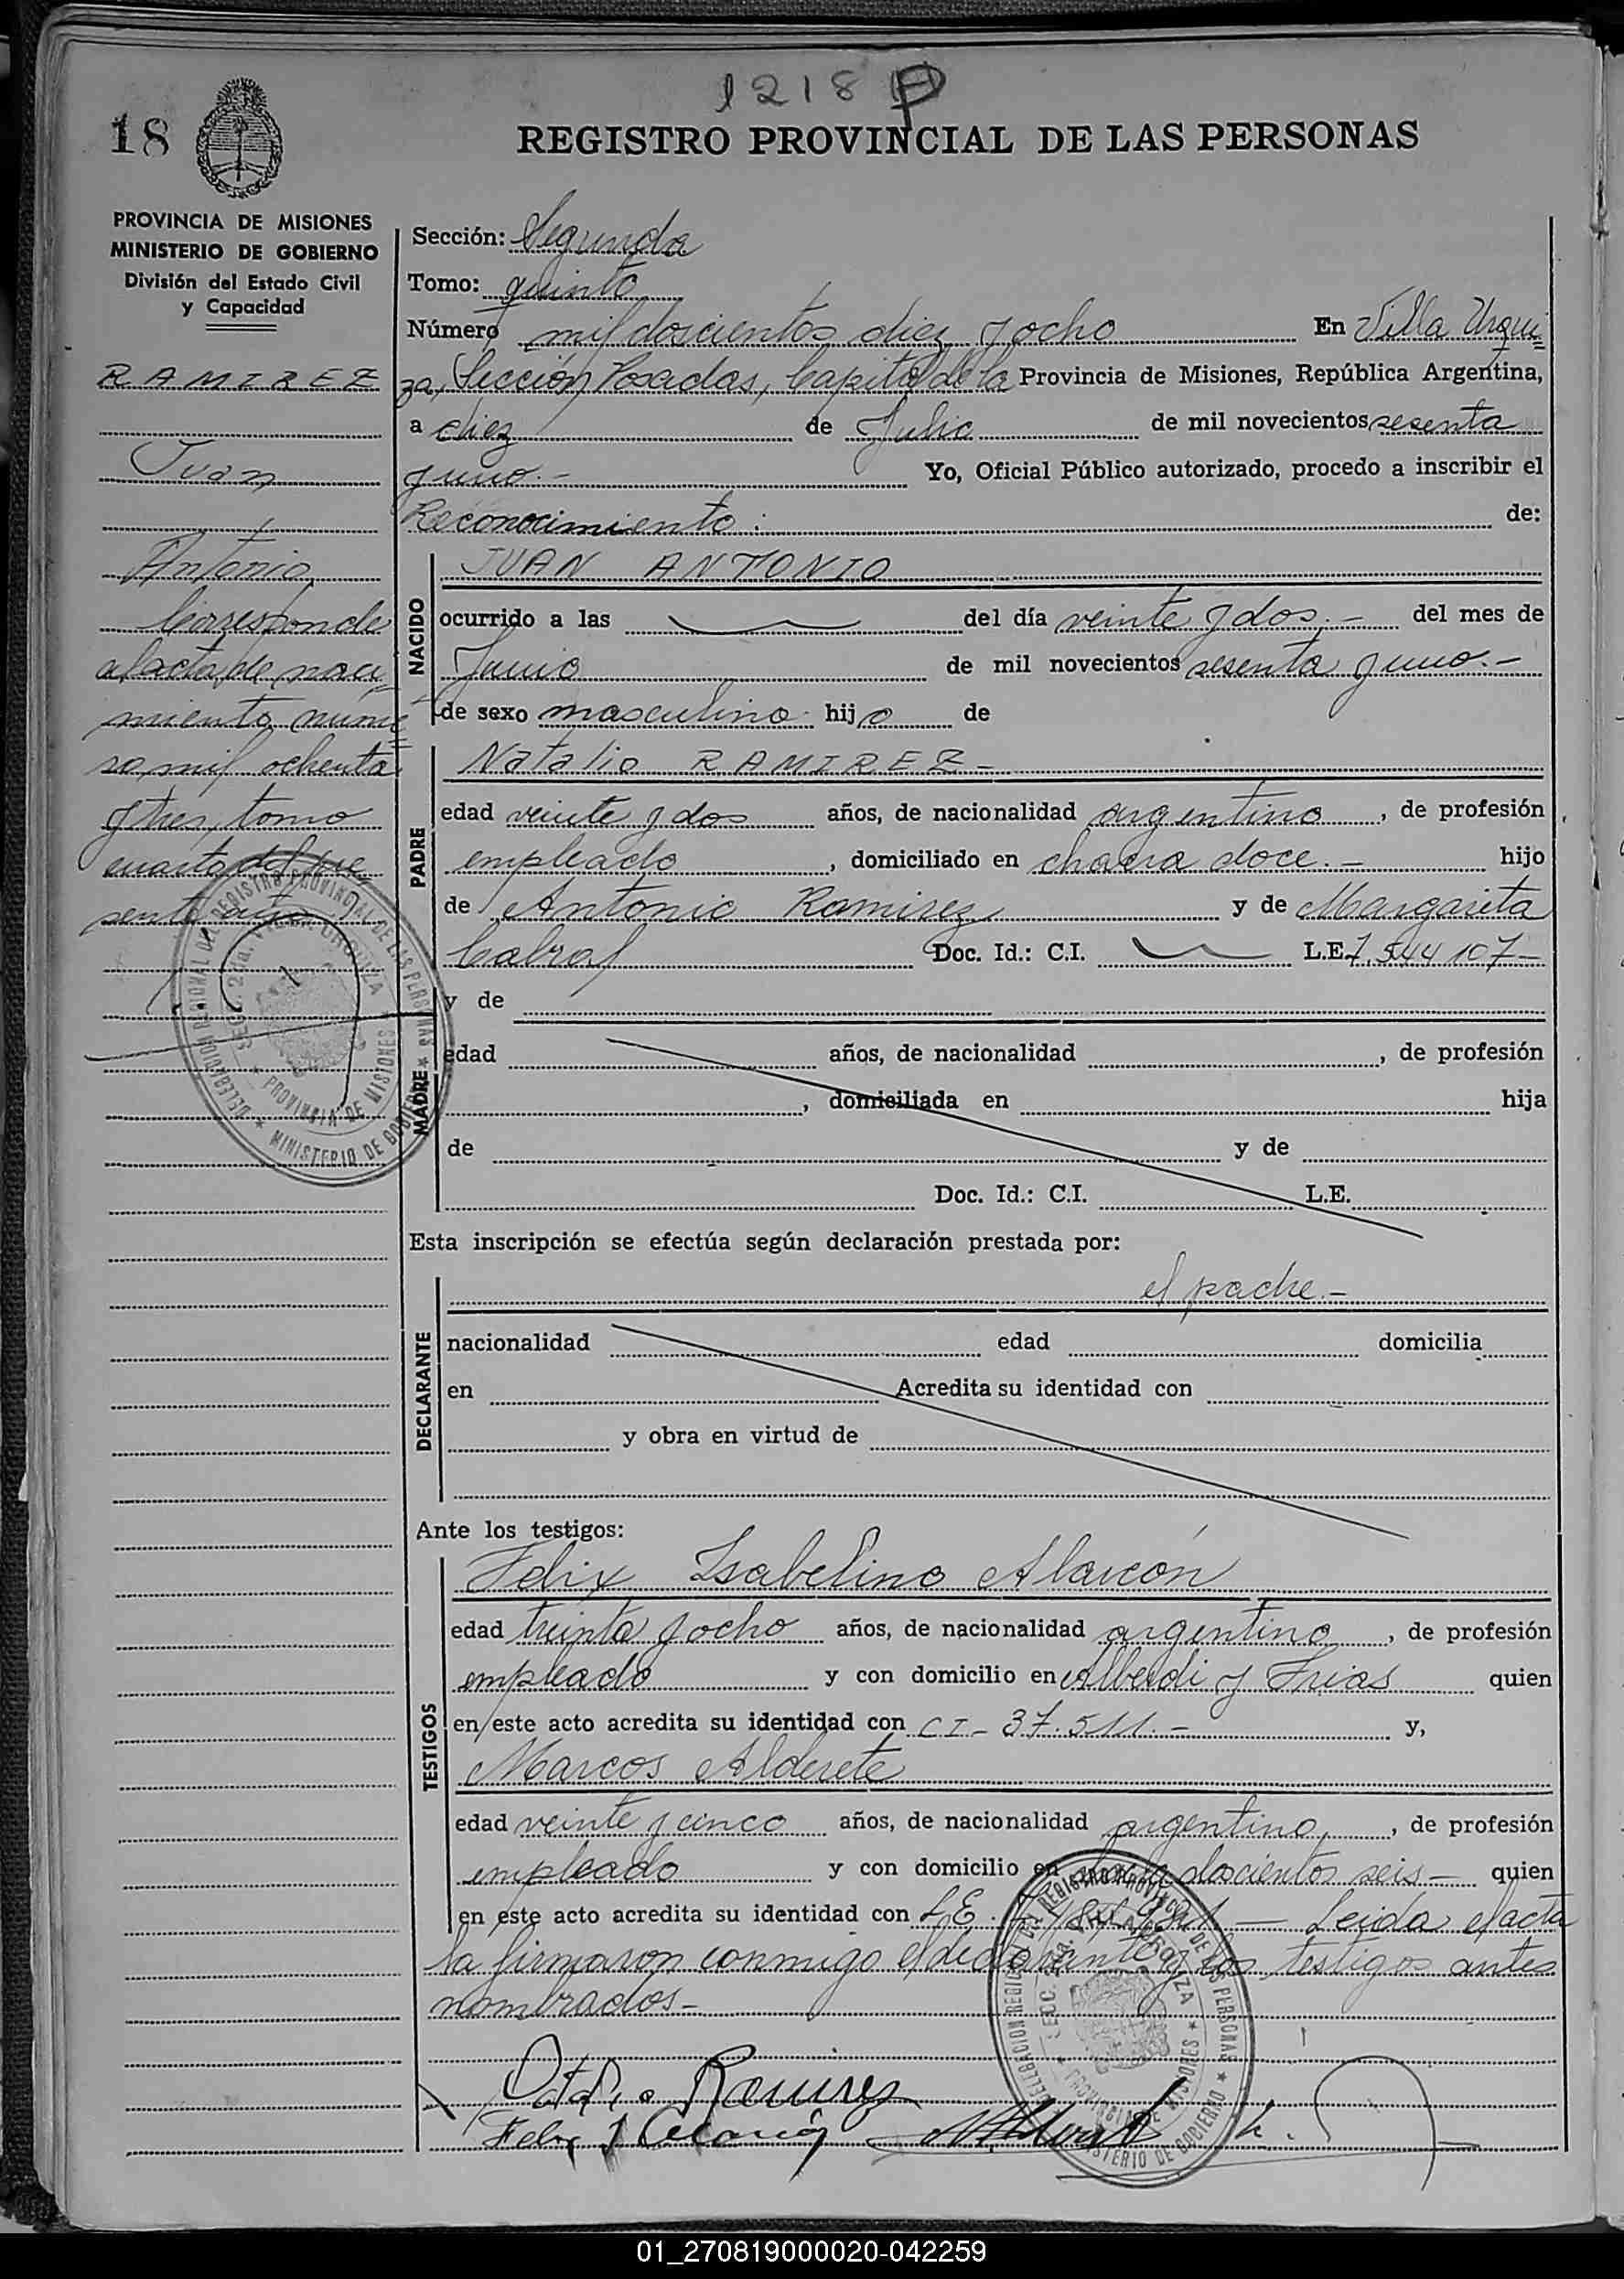 1218 P
18
REGISTRO PROVINCIAL DE LAS PERSONAS
PROVINCIA DE MISIONES
MINISTERIO DE GOBIERNO
División del Estado Civil
y Capacidad
RAMIREZ
Juan
Antonio
Corresponde
al acta de naci
miento núme
ro mil ochenta
y tres, tomo
cuarto del pre
sente año
Sección: Segunda
Tomo: quinto
Número mil doscientos diez y ocho En Villa Urqui
za, Sección Posadas, Capital de la Provincia de Misiones, República Argentina,
a diez de Julio de mil novecientos sesenta
y uno.- Yo, Oficial Público autorizado, procedo a inscribir el
Reconocimiento: de:
NACIDO
JUAN ANTONIO
ocurrido a las del día veinte y dos.- del mes de
Junio de mil novecientos sesenta y uno.-
de sexo masculino hijo de
PADRE
Natalio RAMIREZ-
edad veinte y dos años, de nacionalidad argentino, de profesión
empleado, domiciliado en chacra doce.- hijo
de Antonio Ramirez y de Margarita
Cabral Doc. Id.: C.I. L.E. 7.544.107-
MADRE
y de
edad años, de nacionalidad , de profesión
, domiciliada en hija
de y de
Doc. Id.: C.I. L.E.
Esta inscripción se efectúa según declaración prestada por:
DECLARANTE
el padre.-
nacionalidad edad domicilia
en Acredita su identidad con
y obra en virtud de
Ante los testigos:
TESTIGOS
Felix Isabelino Alarcón
edad treinta y ocho años, de nacionalidad argentino, de profesión
empleado y con domicilio en Alberdi y Frias quien
en este acto acredita su identidad con CI- 37.511.- y,
Marcos Alderete
edad veinte y cinco años, de nacionalidad argentino, de profesión
empleado y con domicilio en doscientos seis- quien
en este acto acredita su identidad con L.E. - Leida el acta
la firmaron conmigo el declarante y los testigos antes
nombrados-
Natalio Ramirez
Felix I Alarcón
DELEGACION REGIONAL DEL REGISTRO PROVINCIAL DE LAS PERSONAS
SECC. 2da. VILLA URQUIZA
PROVINCIA DE MISIONES
MINISTERIO DE GOBIERNO
01_270819000020-042259